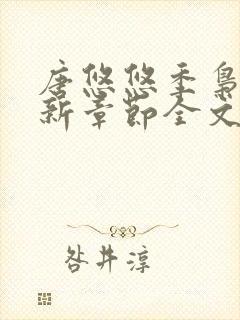 唐悠悠季枭
新章节全文
咎井淳